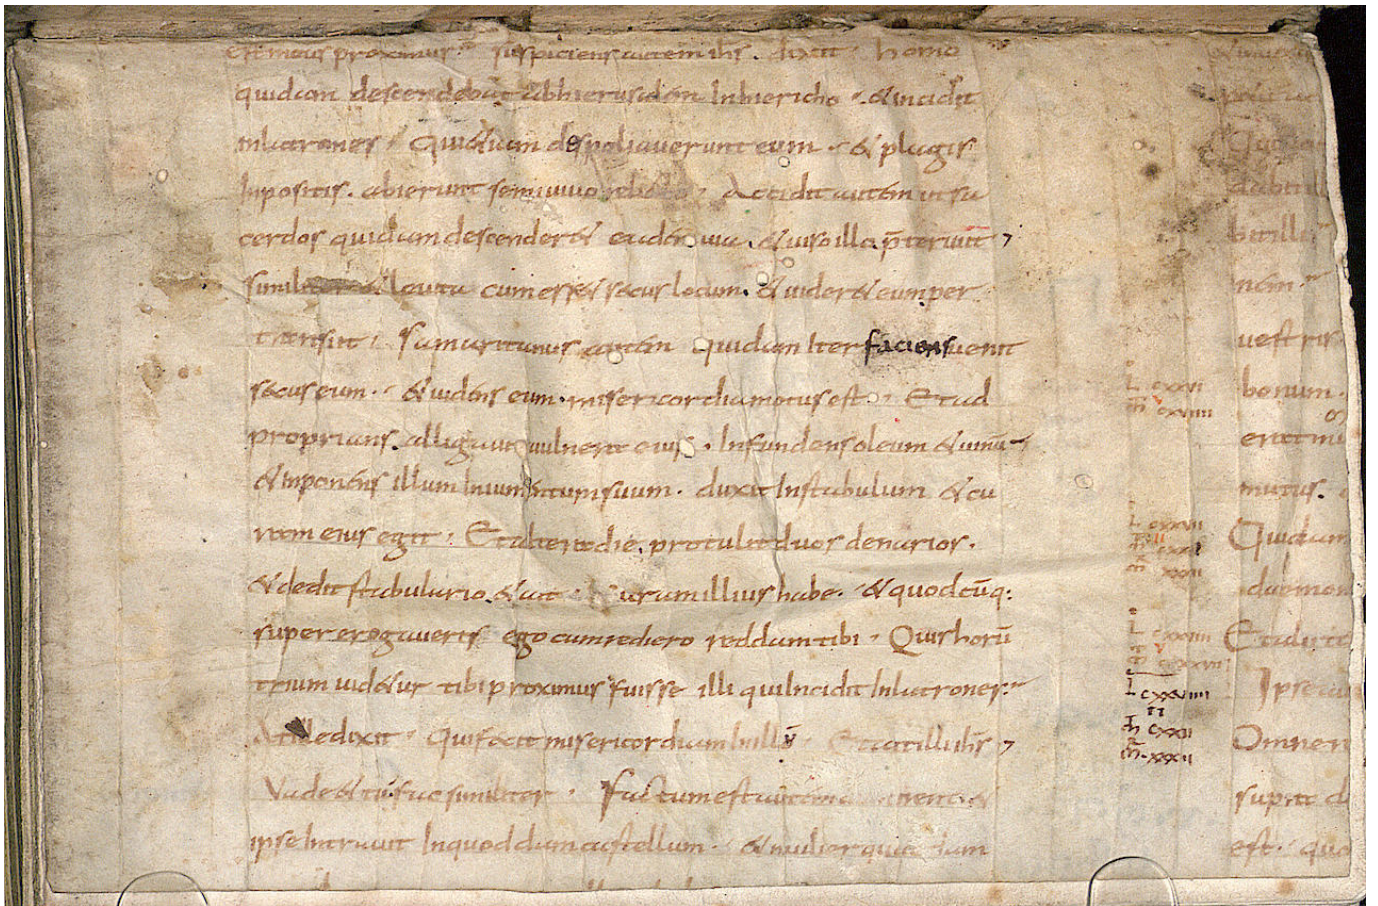 est meus proximus suspiciens autem ihs. dixit homo
quidam descendebat abhierusalem Inhiericho. & incidit
Inlatrones. Qui&iam despoliauerunt eum. & plagis
Inpositis. abierunt semiuiuo relicto. Accidit autem ut sa
cerdos quidam descender& eadem uia. & uiso illo p̄teriuit
similiter & leuita cum ess& secus locum. & uider& eum per
transiit. Samaritanus autem quidam Iter faciens uenit
secus eum. & uidens eum. misericordia motus est. Et ad
proprians. alligauit uulnera eius. Infundens oleum & uinū
& Inponens illum Iniumentum suum. duxit Instabulum & cu
ram eius egit. Et altera die. protulit duos denarios.
& dedit stabulario. & ait. curam illius habe. & quodcūq:
super erogaueris ego cum rediero reddam tibi. Quis horū
trium uid&ur tibi proximus fuisse illi qui Incidit Inlatrones.
At ille dixit. Qui fecit misericordiam In illū. Et ait illi ihs
Vade & tu fac similiter. Factum est autem &
ipse Intrauit Inquoddam castellum. & mulier quaedam
L cxxvi
m̄ cxviiii
L cxxvii
L cxxviii
L cxxviiii
ii
m̄ cxxii
m̄ xxxii
dabit
bit illas
nem
uestris
bonum.
erat mu
mutus.
Quidam
daemon
Et aliit
Ipse au
Omne r
supra d
est. quo